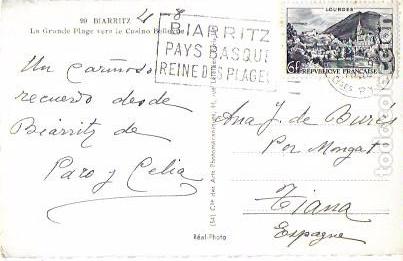 99 BIARRITZ
La Grande Plage vers le Casino Bellevue
4-8
BIARRITZ
PAYS BASQUE
REINE DES PLAGES
LOURDES
6F REPUBLIQUE FRANÇAISE
Un cariñoso
recuerdo desde
Biarritz de
Paro y Celia
Ana J. de Burés
Por Mongat
Tiana
Espagne
Réal-Photo
todocoleccion